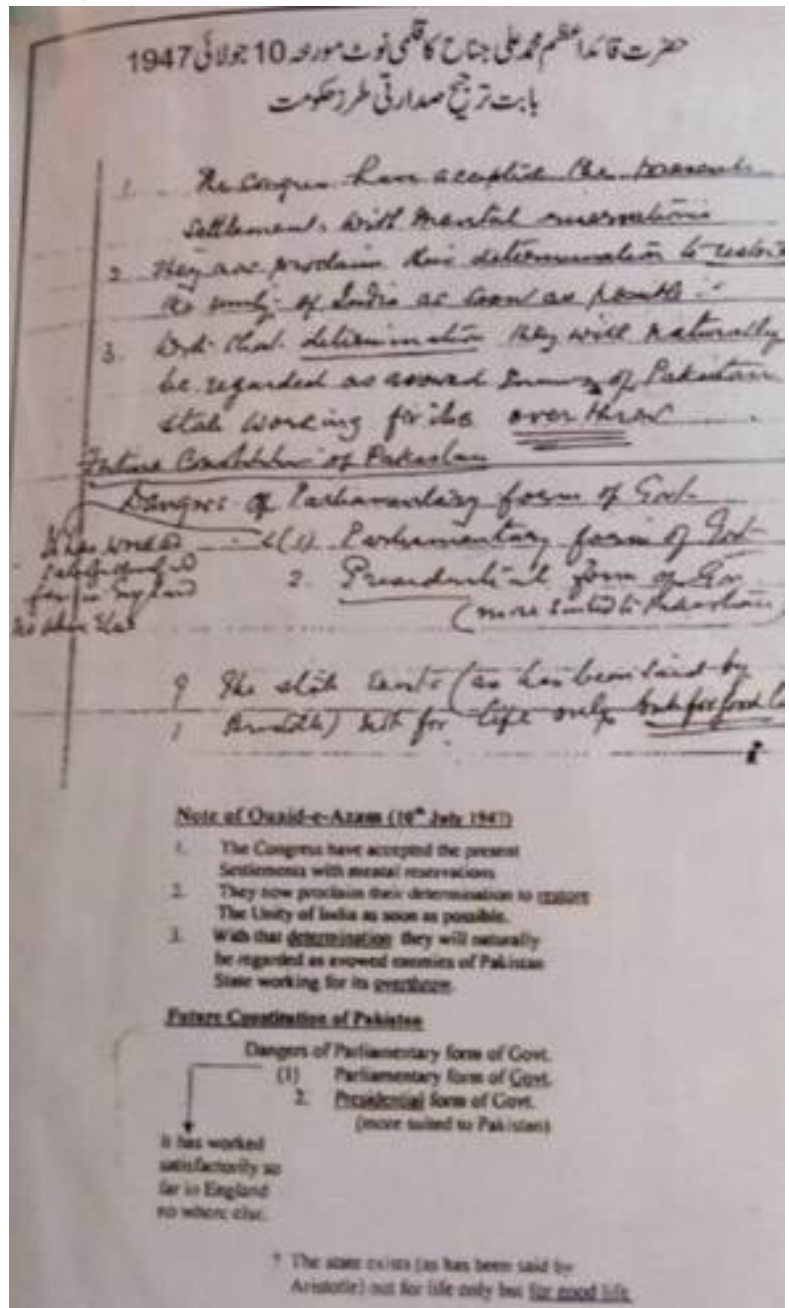 حضرت قائداعظم محمد علی جناح کا قلمی نوٹ مورخہ 10 جولائی 1947
بابت ترجیح صدارتی طرز حکومت
1. The Congress have accepted the present
Settlements with mental reservations
2. They now proclaim their determination to restore
the unity of India as soon as possible.
3. With that determination they will naturally
be regarded as avowed enemies of Pakistan
State working for its overthrow
Future Constitution of Pakistan
Dangers of Parliamentary form of Govt.
(1) Parliamentary form of Govt
2. Presidential form of Gov
(more suited to Pakistan)
It has worked
satisfactorily so
far in England
no where else
? The state exists (as has been said by
Aristotle) not for life only but for good life
Note of Quaid-e-Azam (10th July 1947)
1. The Congress have accepted the present
Settlements with mental reservations
2. They now proclaim their determination to restore
The Unity of India as soon as possible.
3. With that determination they will naturally
be regarded as avowed enemies of Pakistan
State working for its overthrow.
Future Constitution of Pakistan
Dangers of Parliamentary form of Govt.
(1) Parliamentary form of Govt.
2. Presidential form of Govt.
(more suited to Pakistan)
It has worked
satisfactorily so
far in England
no where else.
? The state exists (as has been said by
Aristotle) not for life only but for good life